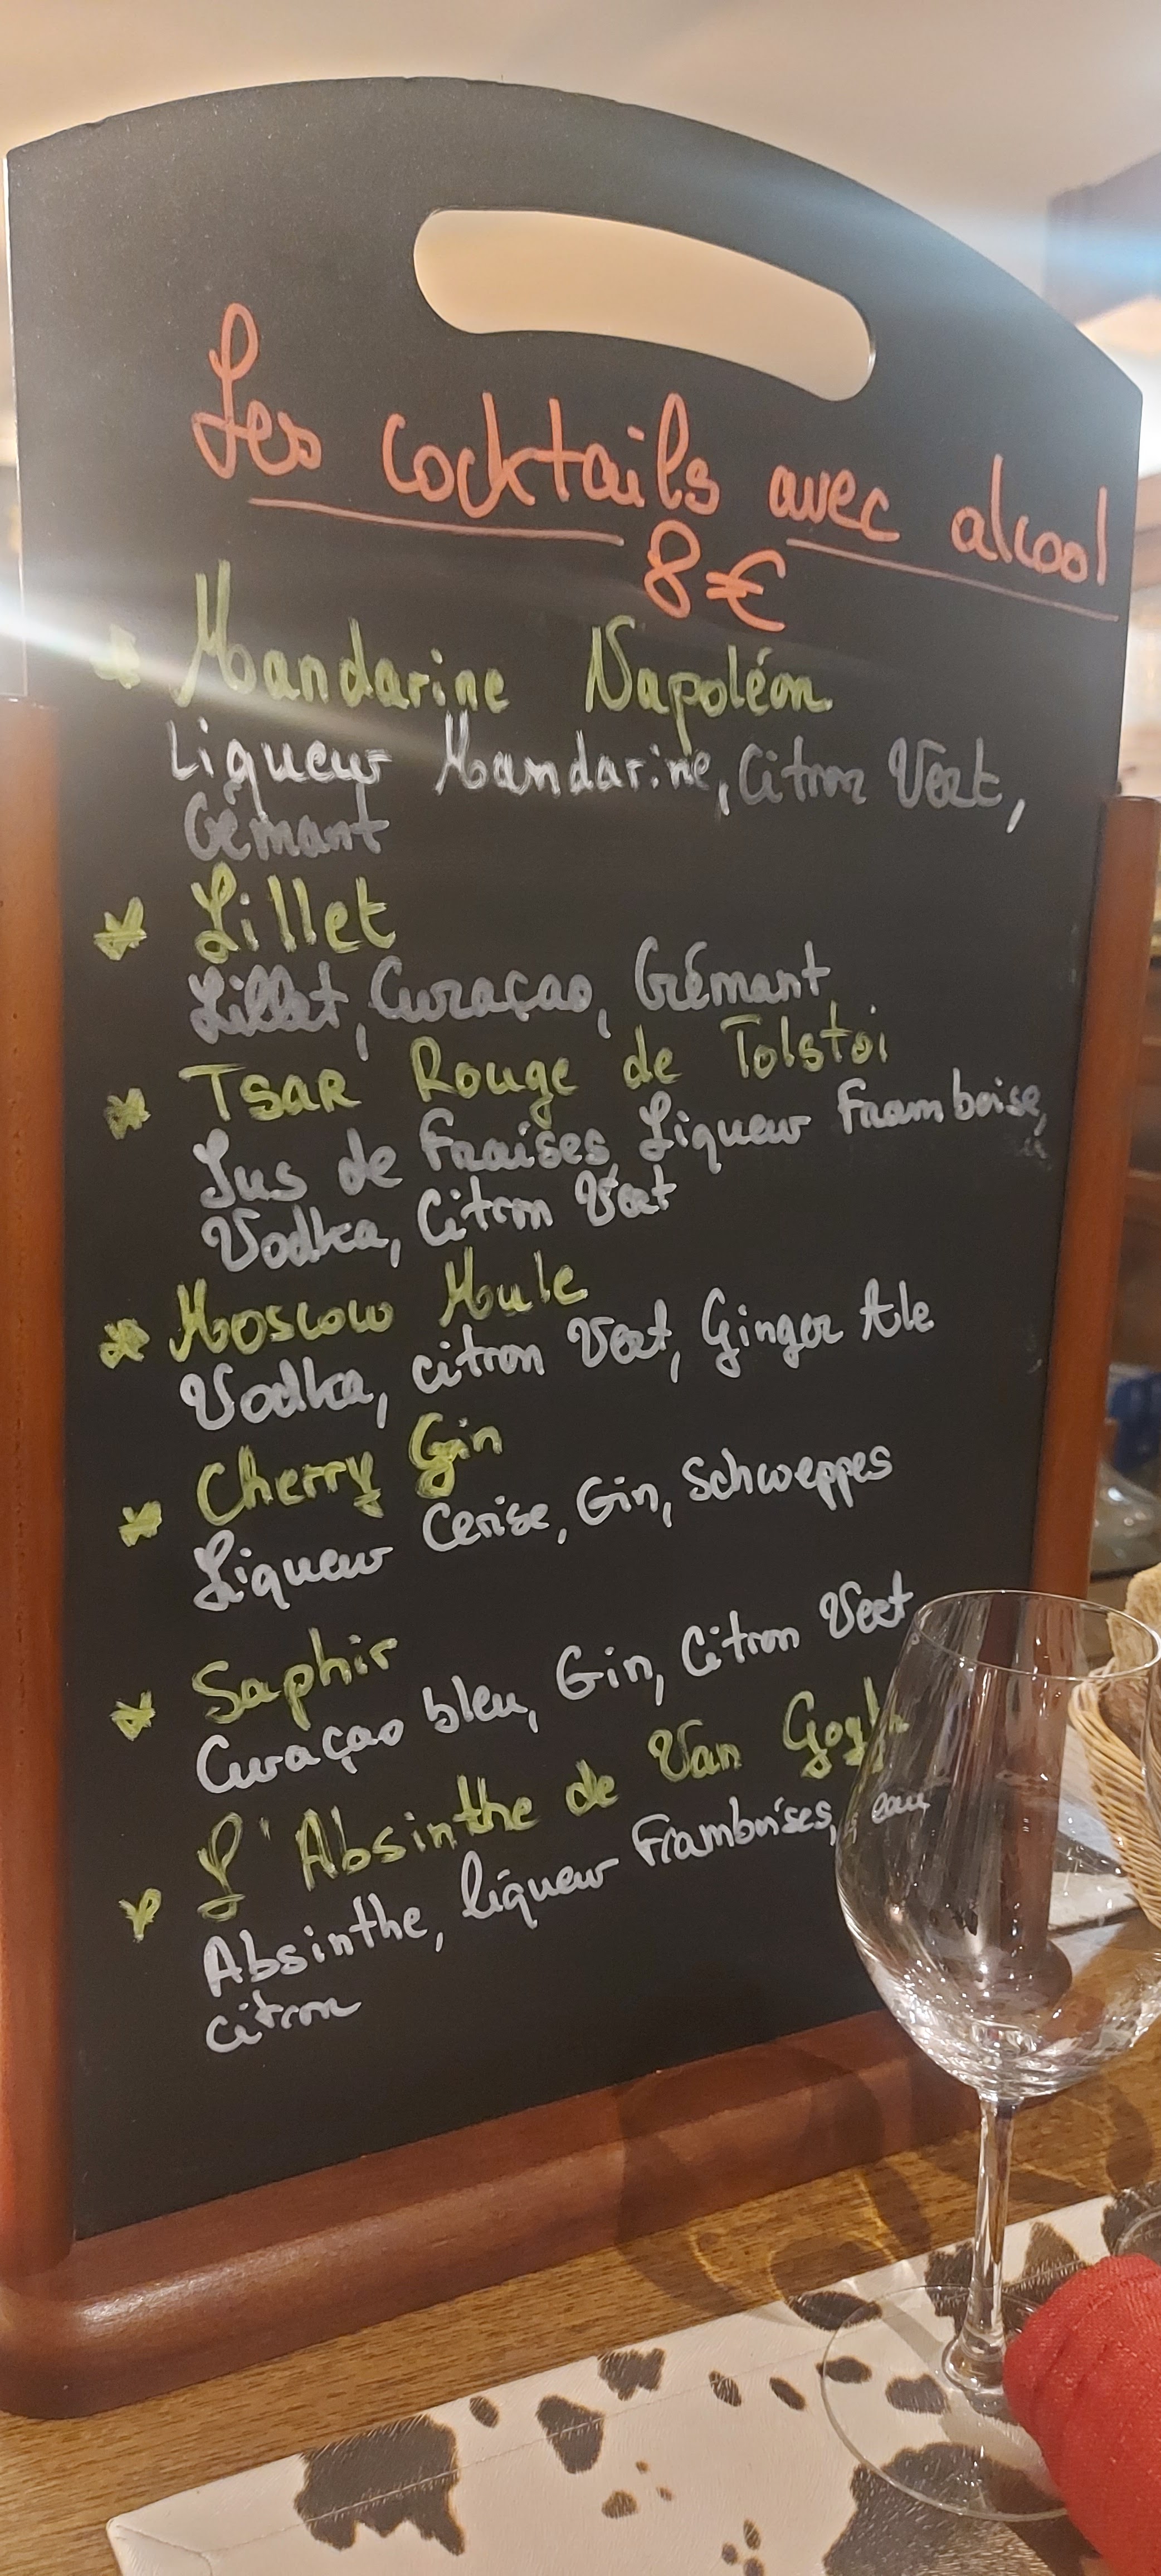 Les cocktails avec alcool
8€
* Mandarine Napoléon
Liqueur Mandarine, Citron Vert,
Crémant
* Lillet
Lillet, Curaçao, Crémant
* TSAR Rouge de Tolstoi
Jus de Fraises, Liqueur Framboise,
Vodka, Citron Vert
* Moscow Mule
Vodka, citron Vert, Ginger Ale
* Cherry Gin
Liqueur Cerise, Gin, Schweppes
* Saphir
Curaçao bleu, Gin, Citron Vert
* L'Absinthe de Van Gogh
Absinthe, liqueur Framboises, eau
citron